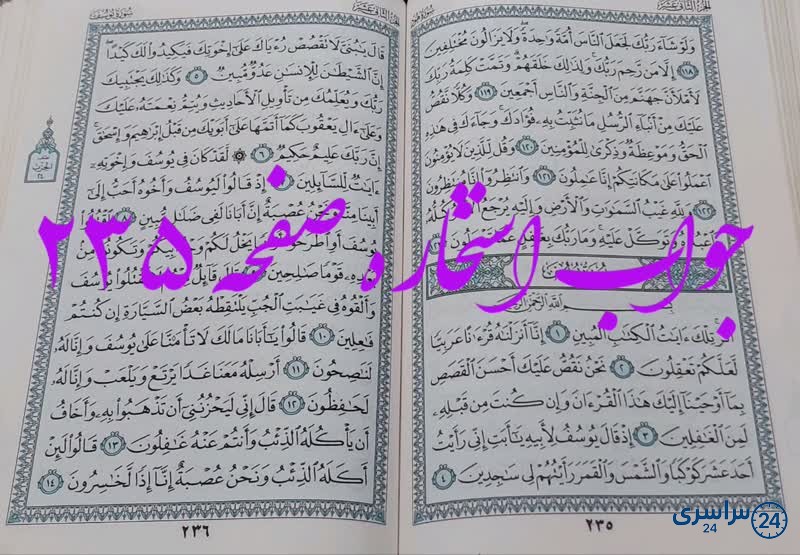 الجزء الثاني عشر
سورة يوسف
وَلَوْ شَاءَ رَبُّكَ لَجَعَلَ النَّاسَ أُمَّةً وَاحِدَةً ۖ وَلَا يَزَالُونَ مُخْتَلِفِينَ
﴿١١٨﴾ إِلَّا مَن رَّحِمَ رَبُّكَ ۚ وَلِذَٰلِكَ خَلَقَهُمْ ۗ وَتَمَّتْ كَلِمَةُ رَبِّكَ
لَأَمْلَأَنَّ جَهَنَّمَ مِنَ الْجِنَّةِ وَالنَّاسِ أَجْمَعِينَ ﴿١١٩﴾ وَكُلًّا نَّقُصُّ
عَلَيْكَ مِنْ أَنبَاءِ الرُّسُلِ مَا نُثَبِّتُ بِهِ فُؤَادَكَ ۚ وَجَاءَكَ فِي هَٰذِهِ
الْحَقُّ وَمَوْعِظَةٌ وَذِكْرَىٰ لِلْمُؤْمِنِينَ ﴿١٢٠﴾ وَقُل لِّلَّذِينَ لَا يُؤْمِنُونَ
اعْمَلُوا عَلَىٰ مَكَانَتِكُمْ إِنَّا عَامِلُونَ ﴿١٢١﴾ وَانتَظِرُوا إِنَّا مُنتَظِرُونَ
﴿١٢٢﴾ وَلِلَّهِ غَيْبُ السَّمَاوَاتِ وَالْأَرْضِ وَإِلَيْهِ يُرْجَعُ الْأَمْرُ كُلُّهُ
فَاعْبُدْهُ وَتَوَكَّلْ عَلَيْهِ ۚ وَمَا رَبُّكَ بِغَافِلٍ عَمَّا تَعْمَلُونَ ﴿١٢٣﴾
سورة يوسف
بِسْمِ اللَّهِ الرَّحْمَٰنِ الرَّحِيمِ
الر ۚ تِلْكَ آيَاتُ الْكِتَابِ الْمُبِينِ ﴿١﴾ إِنَّا أَنزَلْنَاهُ قُرْآنًا عَرَبِيًّا
لَّعَلَّكُمْ تَعْقِلُونَ ﴿٢﴾ نَحْنُ نَقُصُّ عَلَيْكَ أَحْسَنَ الْقَصَصِ
بِمَا أَوْحَيْنَا إِلَيْكَ هَٰذَا الْقُرْآنَ وَإِن كُنتَ مِن قَبْلِهِ
لَمِنَ الْغَافِلِينَ ﴿٣﴾ إِذْ قَالَ يُوسُفُ لِأَبِيهِ يَا أَبَتِ إِنِّي رَأَيْتُ
أَحَدَ عَشَرَ كَوْكَبًا وَالشَّمْسَ وَالْقَمَرَ رَأَيْتُهُمْ لِي سَاجِدِينَ ﴿٤﴾
٢٣٥
الجزء الثاني عشر
سورة يوسف
قَالَ يَا بُنَيَّ لَا تَقْصُصْ رُؤْيَاكَ عَلَىٰ إِخْوَتِكَ فَيَكِيدُوا لَكَ كَيْدًا ۖ
إِنَّ الشَّيْطَانَ لِلْإِنسَانِ عَدُوٌّ مُّبِينٌ ﴿٥﴾ وَكَذَٰلِكَ يَجْتَبِيكَ
رَبُّكَ وَيُعَلِّمُكَ مِن تَأْوِيلِ الْأَحَادِيثِ وَيُتِمُّ نِعْمَتَهُ عَلَيْكَ
وَعَلَىٰ آلِ يَعْقُوبَ كَمَا أَتَمَّهَا عَلَىٰ أَبَوَيْكَ مِن قَبْلُ إِبْرَاهِيمَ وَإِسْحَاقَ ۚ
إِنَّ رَبَّكَ عَلِيمٌ حَكِيمٌ ﴿٦﴾ ۞ لَّقَدْ كَانَ فِي يُوسُفَ وَإِخْوَتِهِ
آيَاتٌ لِّلسَّائِلِينَ ﴿٧﴾ إِذْ قَالُوا لَيُوسُفُ وَأَخُوهُ أَحَبُّ إِلَىٰ
أَبِينَا مِنَّا وَنَحْنُ عُصْبَةٌ إِنَّ أَبَانَا لَفِي ضَلَالٍ مُّبِينٍ ﴿٨﴾ اقْتُلُوا
يُوسُفَ أَوِ اطْرَحُوهُ أَرْضًا يَخْلُ لَكُمْ وَجْهُ أَبِيكُمْ وَتَكُونُوا مِن
بَعْدِهِ قَوْمًا صَالِحِينَ ﴿٩﴾ قَالَ قَائِلٌ مِّنْهُمْ لَا تَقْتُلُوا يُوسُفَ
وَأَلْقُوهُ فِي غَيَابَتِ الْجُبِّ يَلْتَقِطْهُ بَعْضُ السَّيَّارَةِ إِن كُنتُمْ
فَاعِلِينَ ﴿١٠﴾ قَالُوا يَا أَبَانَا مَا لَكَ لَا تَأْمَنَّا عَلَىٰ يُوسُفَ وَإِنَّا لَهُ
لَنَاصِحُونَ ﴿١١﴾ أَرْسِلْهُ مَعَنَا غَدًا يَرْتَعْ وَيَلْعَبْ وَإِنَّا لَهُ
لَحَافِظُونَ ﴿١٢﴾ قَالَ إِنِّي لَيَحْزُنُنِي أَن تَذْهَبُوا بِهِ وَأَخَافُ
أَن يَأْكُلَهُ الذِّئْبُ وَأَنتُمْ عَنْهُ غَافِلُونَ ﴿١٣﴾ قَالُوا لَئِنْ
أَكَلَهُ الذِّئْبُ وَنَحْنُ عُصْبَةٌ إِنَّا إِذًا لَّخَاسِرُونَ ﴿١٤﴾
٢٣٦
الحزب
٢٤
جواب استخاره صفحه ۲۳۵
سراسری
24
24